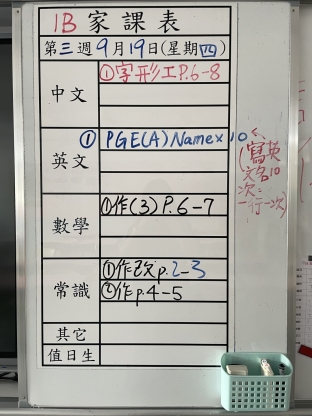 1B家課表
第三週9月19日(星期四)
中文
①字形工P.6-8
英文
① PGE(A) Name×10
(寫英
文名10
次:
一行一次)
數學
①作(3) P.6-7
常識
①作改p.2-3
②作p.4-5
其它
值日生